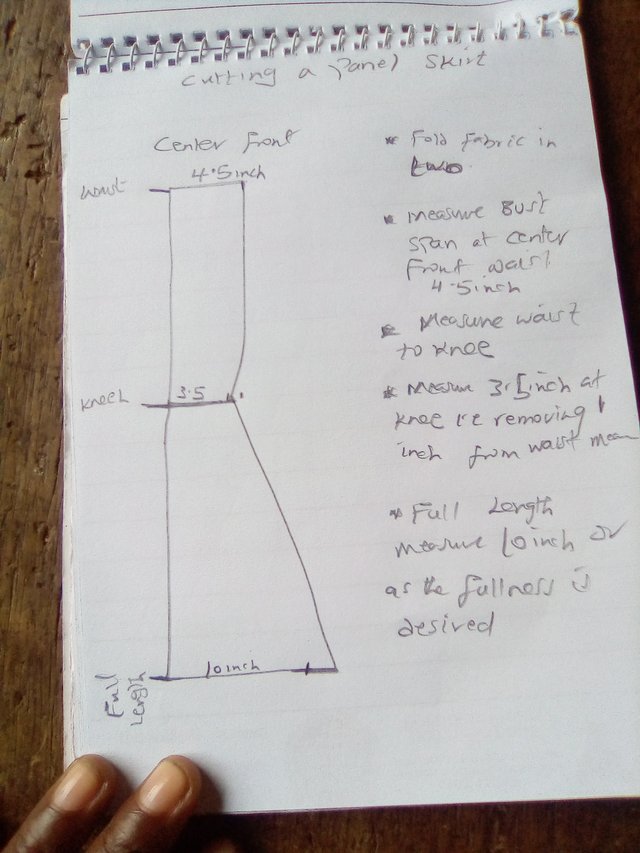 Cutting a panel skirt
Center front
4.5inch
waist
3.5
kneeh
10inch
Full
Length
* Fold fabric in
two
* measure Bust
span at center
front waist
4.5inch
* Measure waist
to knee
* Measure 3.5inch at
knee i.e removing 1
inch from waist mea
* Full Length
measure 10inch or
as the fullness is
desired